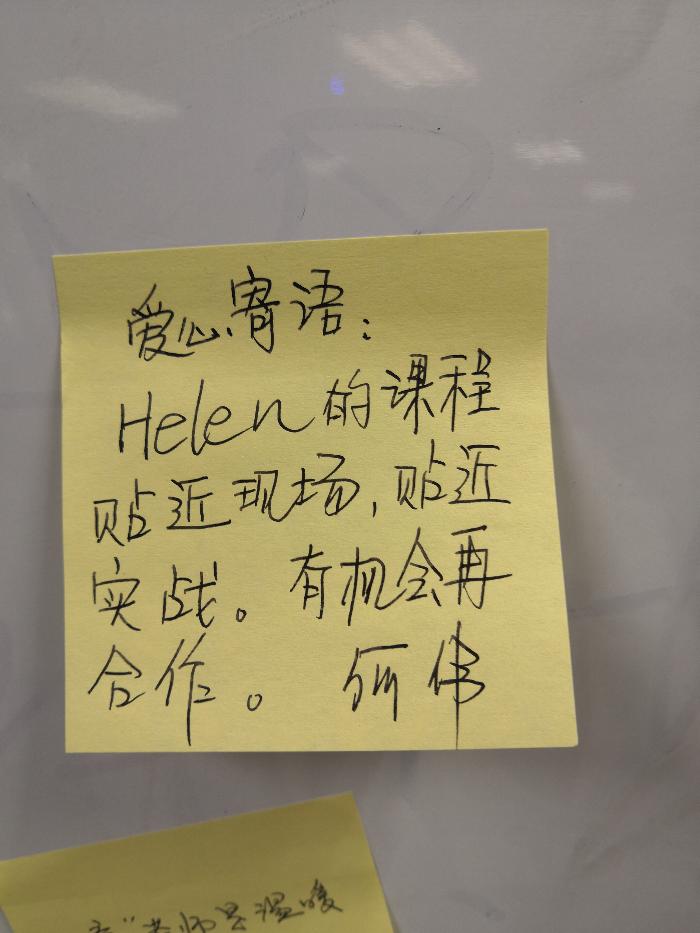 爱心寄语：
Helen的课程
贴近现场，贴近
实战。有机会再
合作。 何伟
老师是温暖